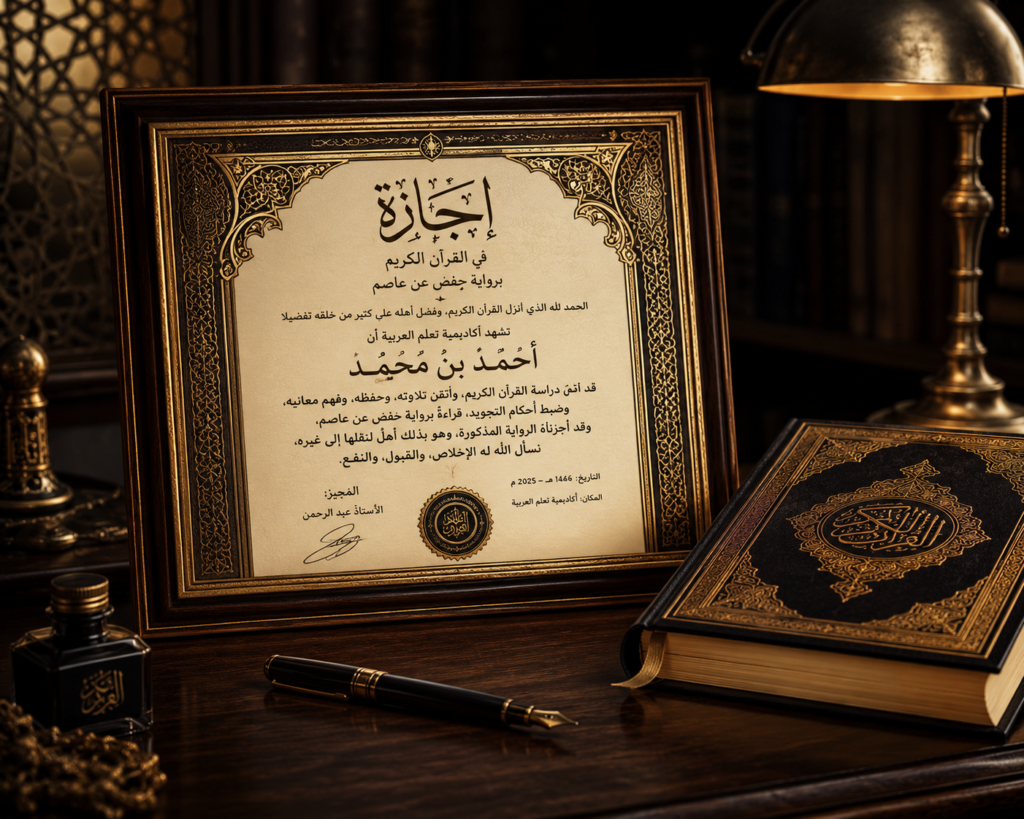 إجَازة
في القرآن الكريم
برواية حفص عن عاصم
الحمد لله الذي أنزل القرآن الكريم، وفضل أهله على كثير من خلقه تفضيلا
تشهد أكاديمية تعلم العربية أن
أحْمَدْ بنُ مُحُمَّد
قد أتمّ دراسة القرآن الكريم، وأتقن تلاوته، وحفظه، وفهم معانيه،
وضبط أحكام التجويد، قراءةً برواية خفض عن عاصم،
وقد أجزناه الرواية المذكورة، وهو بذلك أهلٌ لنقلها إلى غيره،
نسأل الله له الإخلاص، والقبول، والنفع.
التاريخ: 1446 هـ – 2025 م
المكان: أكاديمية تعلم العربية
المُجيز:
الأستاذُ عبد الرحمن